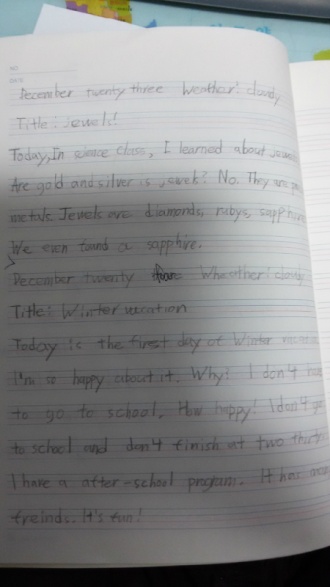 December twenty three Weather: cloudy
Title: Jewels!
Today, In science class, I learned about
Are gold and silver is jewels? No. They are
metals. Jewels are diamonds, rubys, sapphire
We even found a sapphire.
December twenty Wheather: cloudy
Title: Winter vacation
Today is the first day of Winter
I'm so happy about it. Why? I don't
to go to school. How happy! I don't go
to school and don't finish at two thirty
I have a after-school program. It has
freinds. It's fun!